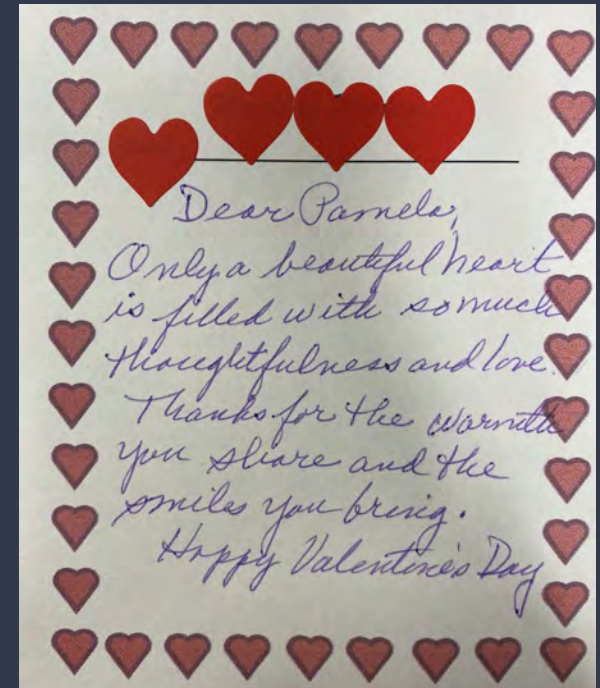 Dear Pamela,
Only a beautiful heart
is filled with so much
thoughtfulness and love.
Thanks for the warmth
you share and the
smiles you bring.
Happy Valentine's Day